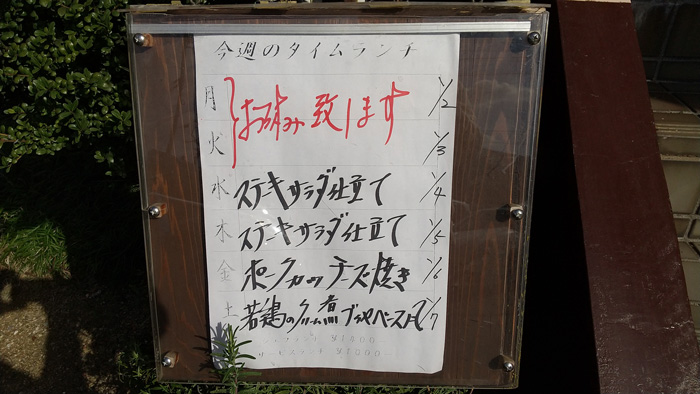 今週のタイムランチ
月 お休み致します 1/2
火 1/3
水 ステキサラダ仕立て 1/4
木 ステーキサラダ仕立て 1/5
金 ポークカツチーズ焼き 1/6
土 若鶏のクリーム煮ブイヤベース風 1/7
ランチ ¥1,400
サービスランチ ¥1,000